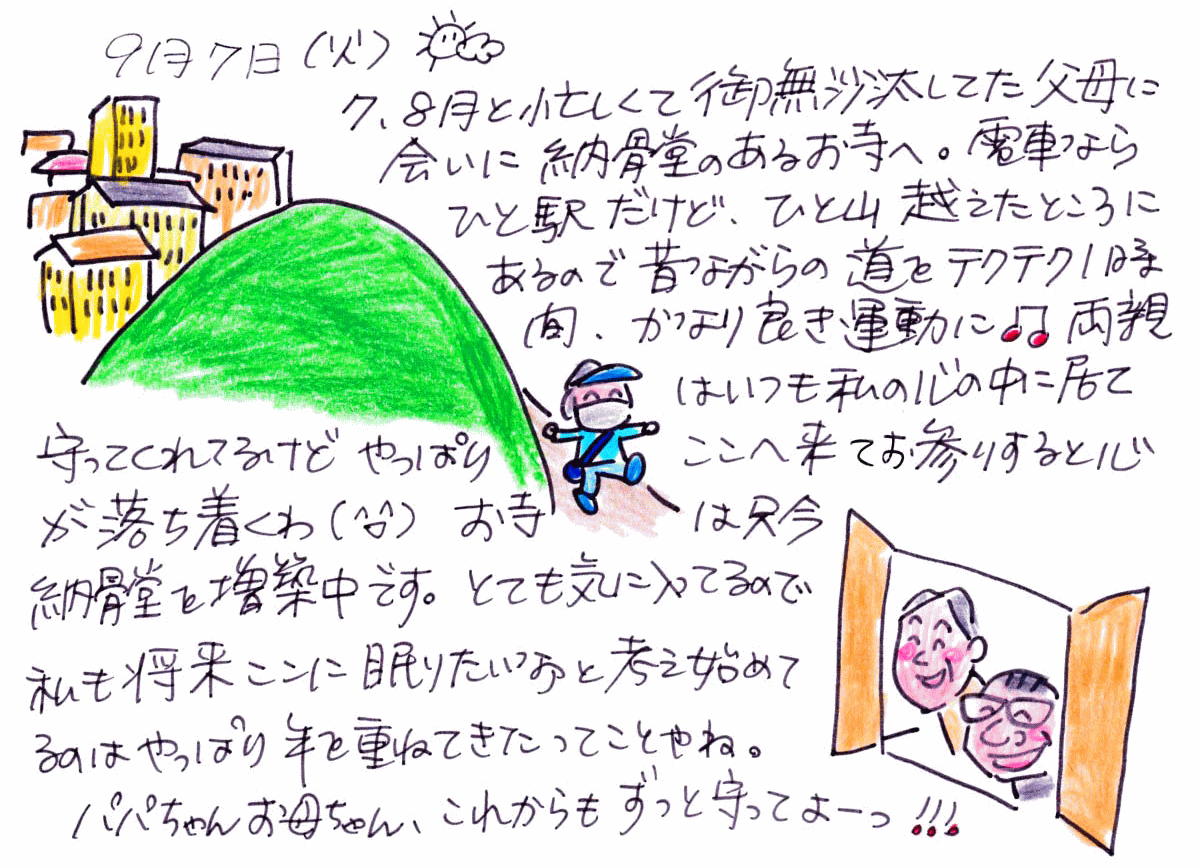 9月7日(火)
7、8月と忙しくて御無沙汰してた父母に
会いに納骨堂のあるお寺へ。電車なら
ひと駅だけど、ひと山越えたところに
あるので昔ながらの道をテクテク1時
間、かなり良き運動に♫両親
はいつも私の心の中に居て
守ってくれてるけどやっぱり ここへ来てお参りすると心
が落ち着くわ(^^) お寺 は只今
納骨堂を増築中です。とても気に入ってるので
私も将来ここに眠りたいなと考え始めて
るのはやっぱり年を重ねてきたってことやね。
パパちゃんお母ちゃん、これからもずっと守ってよーっ!!!